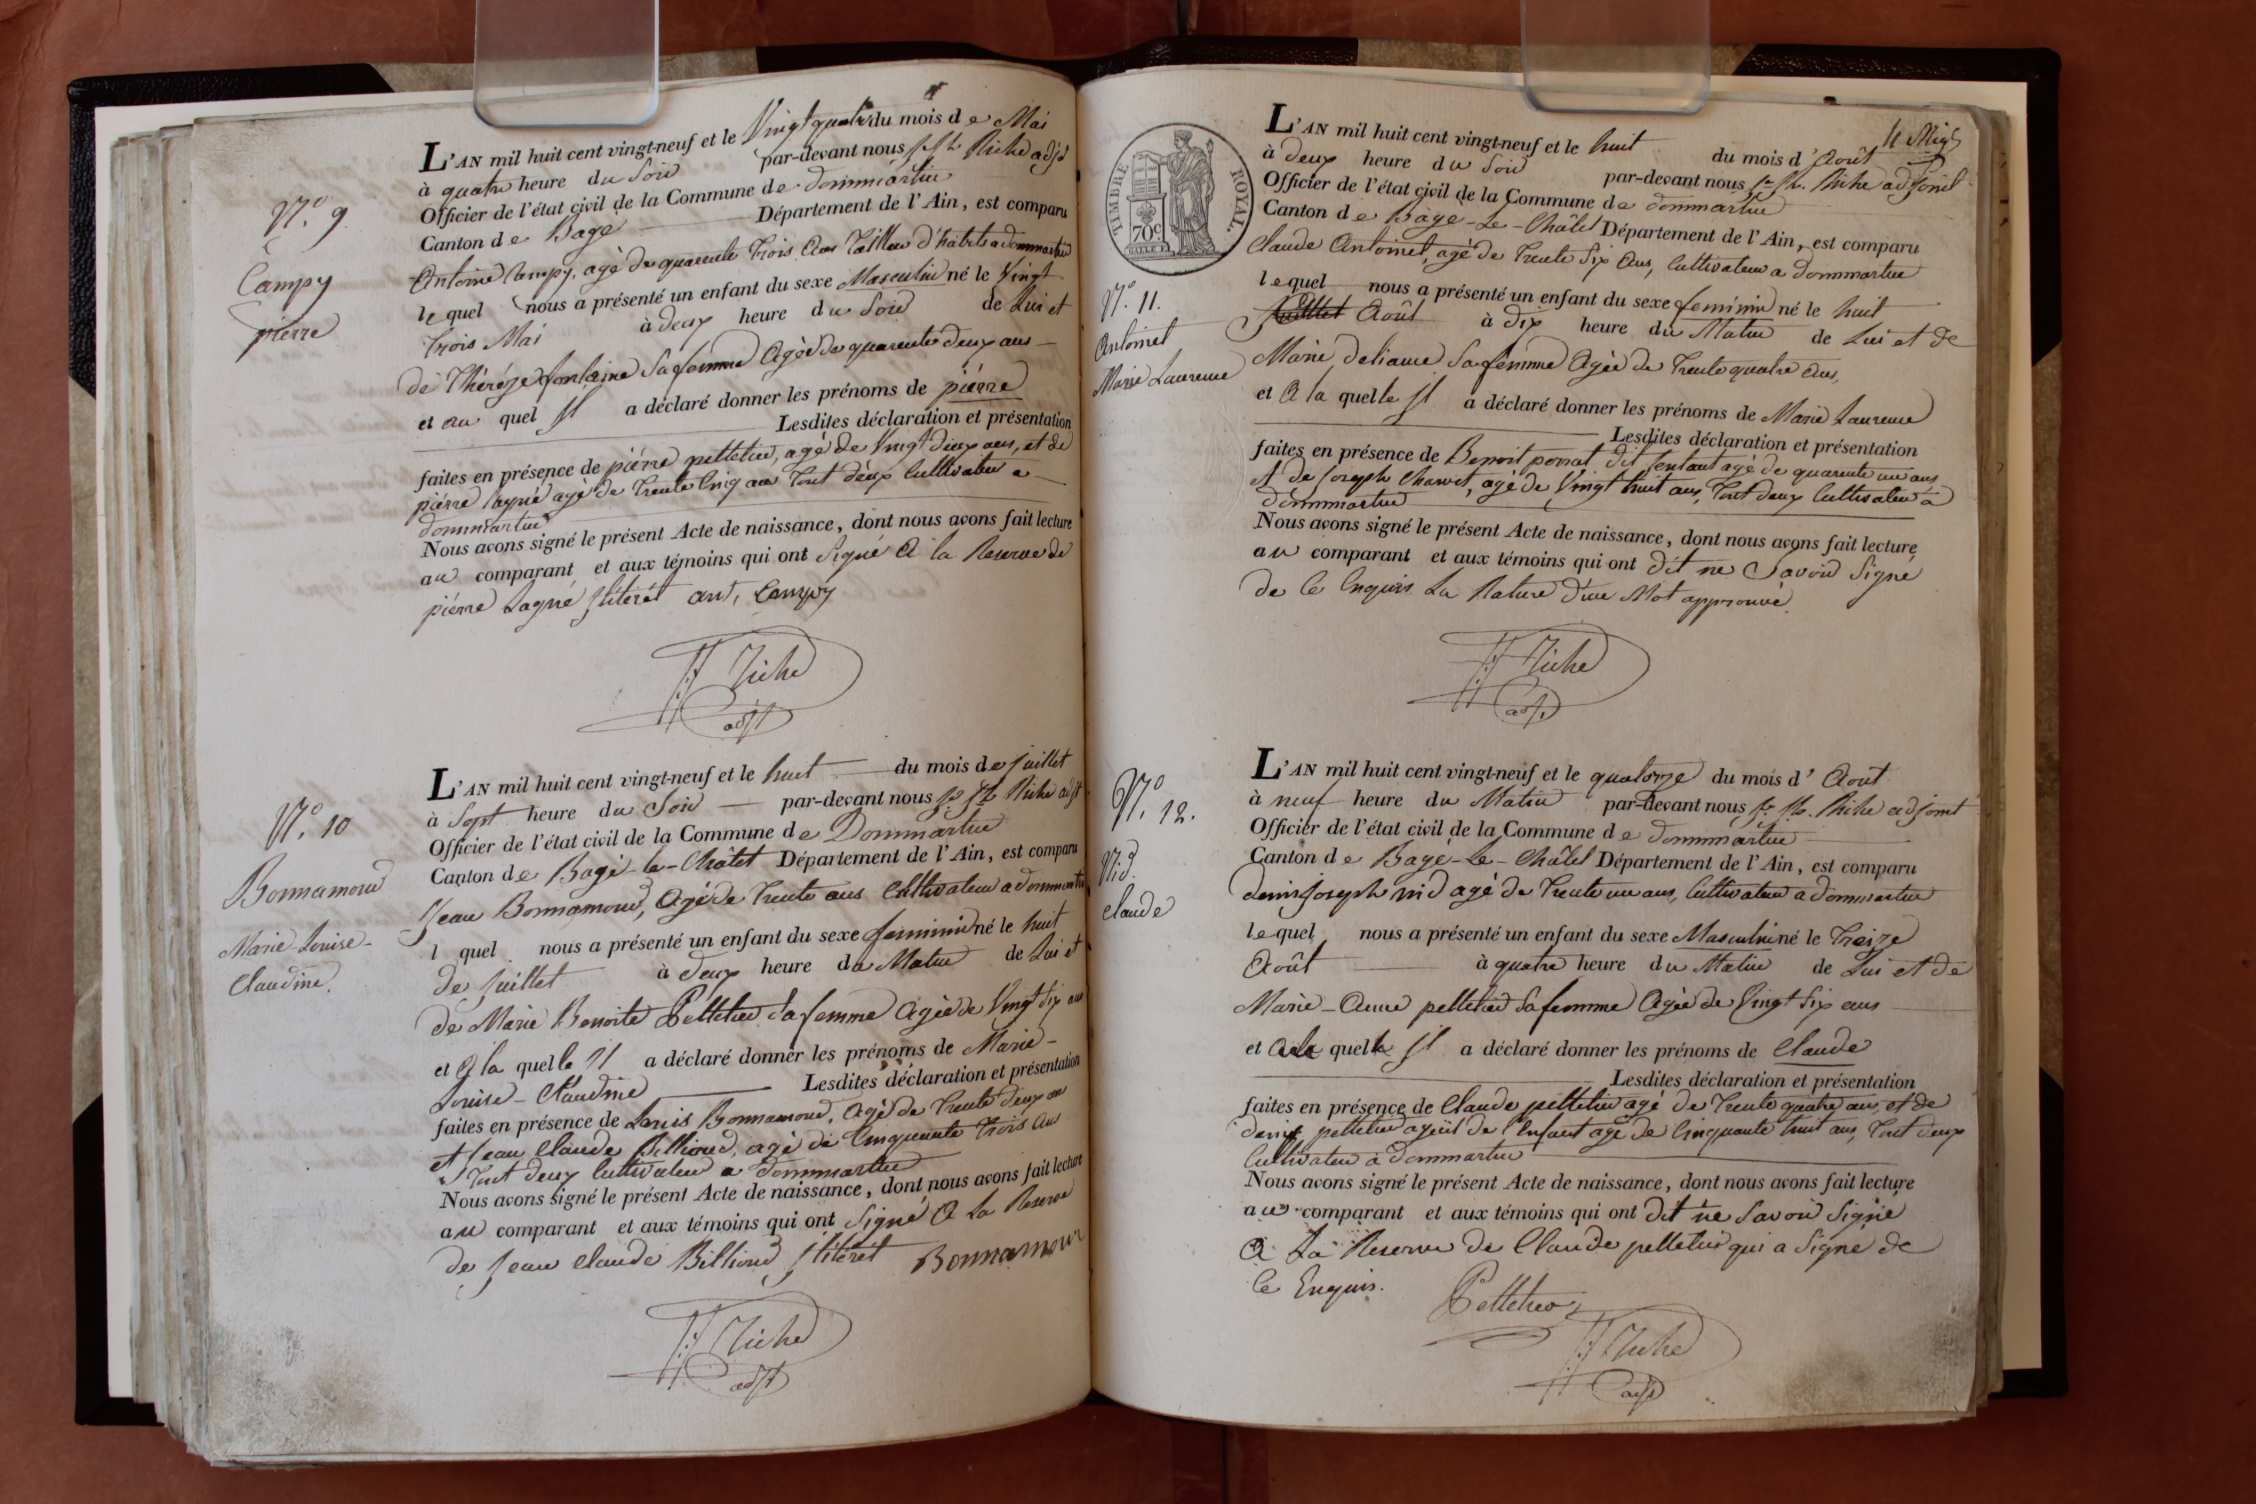 N.º 9
Campy
pierre
L'AN mil huit cent vingt-neuf et le Vingt quatr du mois de Mai
à quatre heure du Soir par-devant nous Riche adjt
Officier de l'état civil de la Commune de dommartin
Canton de Bagé Département de l'Ain, est comparu
Antoine Campy, agé de quarente trois ans Tailleur d'habits a dommartin
lequel nous a présenté un enfant du sexe Masculin né le Vingt
trois Mai à deux heure du Soir de Lui et
de Thérèze fontaine Sa femme Agée de quarente deux ans
et au quel Il a déclaré donner les prénoms de pierre
Lesdites déclaration et présentation
faites en présence de pierre pelletier, agé de Vingt deux ans, et de
pierre agé de Trente Cinq ans Tout deux Cultivateur a
dommartin
Nous avons signé le présent Acte de naissance, dont nous avons fait lecture
au comparant et aux témoins qui ont Signé A la Reserve de
pierre Lagné Iliterét ant. Campy
Riche
adjt
N.º 10
Bonnamour
Marie-Louise-
Claudine.
L'AN mil huit cent vingt-neuf et le huit du mois de juillet
à Sept heure du Soir par-devant nous Riche adjt
Officier de l'état civil de la Commune de Dommartin
Canton de Bagé-le-Châtel Département de l'Ain, est comparu
Jean Bonnamour, Agé de Trente ans Cultivateur a dommartin
l quel nous a présenté un enfant du sexe feminin né le huit
de Juillet à deux heure du Matin de Lui et
de Marie Benoite Pelletier Sa femme Agée de Vingt Six ans
et A la quelle Il a déclaré donner les prénoms de Marie-
Louise-Claudine Lesdites déclaration et présentation
faites en présence de Louis Bonnamour, Agé de Trente deux an
et Jean Claude Billioud, agé de Cinquante Trois an
Tout deux Cultivateur a dommartin
Nous avons signé le présent Acte de naissance, dont nous avons fait lecture
au comparant et aux témoins qui ont Signé A La Reserve
de Jean Claude Billioud Iliterét Bonnamour
Riche
adjt
TIMBRE ROYAL
70c
N.º 11.
Antoinet
Marie Laurence
L'AN mil huit cent vingt-neuf et le huit du mois d'Août
à deux heure du Soir par-devant nous Riche adjoint
Officier de l'état civil de la Commune de dommartin
Canton de Bagé-Le-Châtel Département de l'Ain, est comparu
Claude Antoinet, agé de Trente Six Ans, Cultivateur a dommartin
lequel nous a présenté un enfant du sexe feminin né le huit
Juillet Août à dix heure du Matin de Lui et de
Marie deliance Sa femme Agée de Trente quatre ans,
et A la quelle Il a déclaré donner les prénoms de Marie Laurence
Lesdites déclaration et présentation
faites en présence de Benoit dit agé de quarente un ans,
et de Joseph Charvet, agé de Vingt huit ans, Tout deux Cultivateur a
dommartin
Nous avons signé le présent Acte de naissance, dont nous avons fait lecture
au comparant et aux témoins qui ont dit ne Savoir Signé
de Ce Enquis La Rature d'un Mot approuvé.
Riche
adjt
N.º 12.
Nid.
Claude
L'AN mil huit cent vingt-neuf et le quatorze du mois d' Août
à neuf heure du Matin par-devant nous Riche adjoint
Officier de l'état civil de la Commune de dommartin
Canton de Bagé-Le-Châtel Département de l'Ain, est comparu
denis joseph nid agé de Trente un ans, Cultivateur a dommartin
lequel nous a présenté un enfant du sexe Masculin né le Treize
Août à quatre heure du Matin de Lui et de
Marie-Anne pelletier Sa femme Agée de Vingt Six ans
et Ala quelle Il a déclaré donner les prénoms de Claude
Lesdites déclaration et présentation
faites en présence de Claude pelletier agé de Trente quatre ans, et de
denis pelletier de l'Enfant agé de Cinquante huit ans, Tout deux
Cultivateur a dommartin
Nous avons signé le présent Acte de naissance, dont nous avons fait lecture
au comparant et aux témoins qui ont dit ne Savoir Signé
A La Reserve de Claude pelletier qui a Signé de
Ce Enquis. Pelletier
Riche
adjt